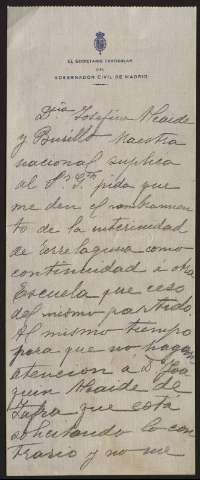 EL SECRETARIO PARTICULAR
DEL
GOBERNADOR CIVIL DE MADRID
Dña Josefina Alcaide
y Busillo Maestra
nacional suplica
al Sr. pida que
me den el nombramien
to de la interinidad
de Torrelaguna como
continuidad á otra
Escuela que ceso
del mismo partido.
Al mismo tiempo
para que no hagan
atención á D. Joa
quin Alcaide de
Zafra que está
solicitando lo con
trario y no me